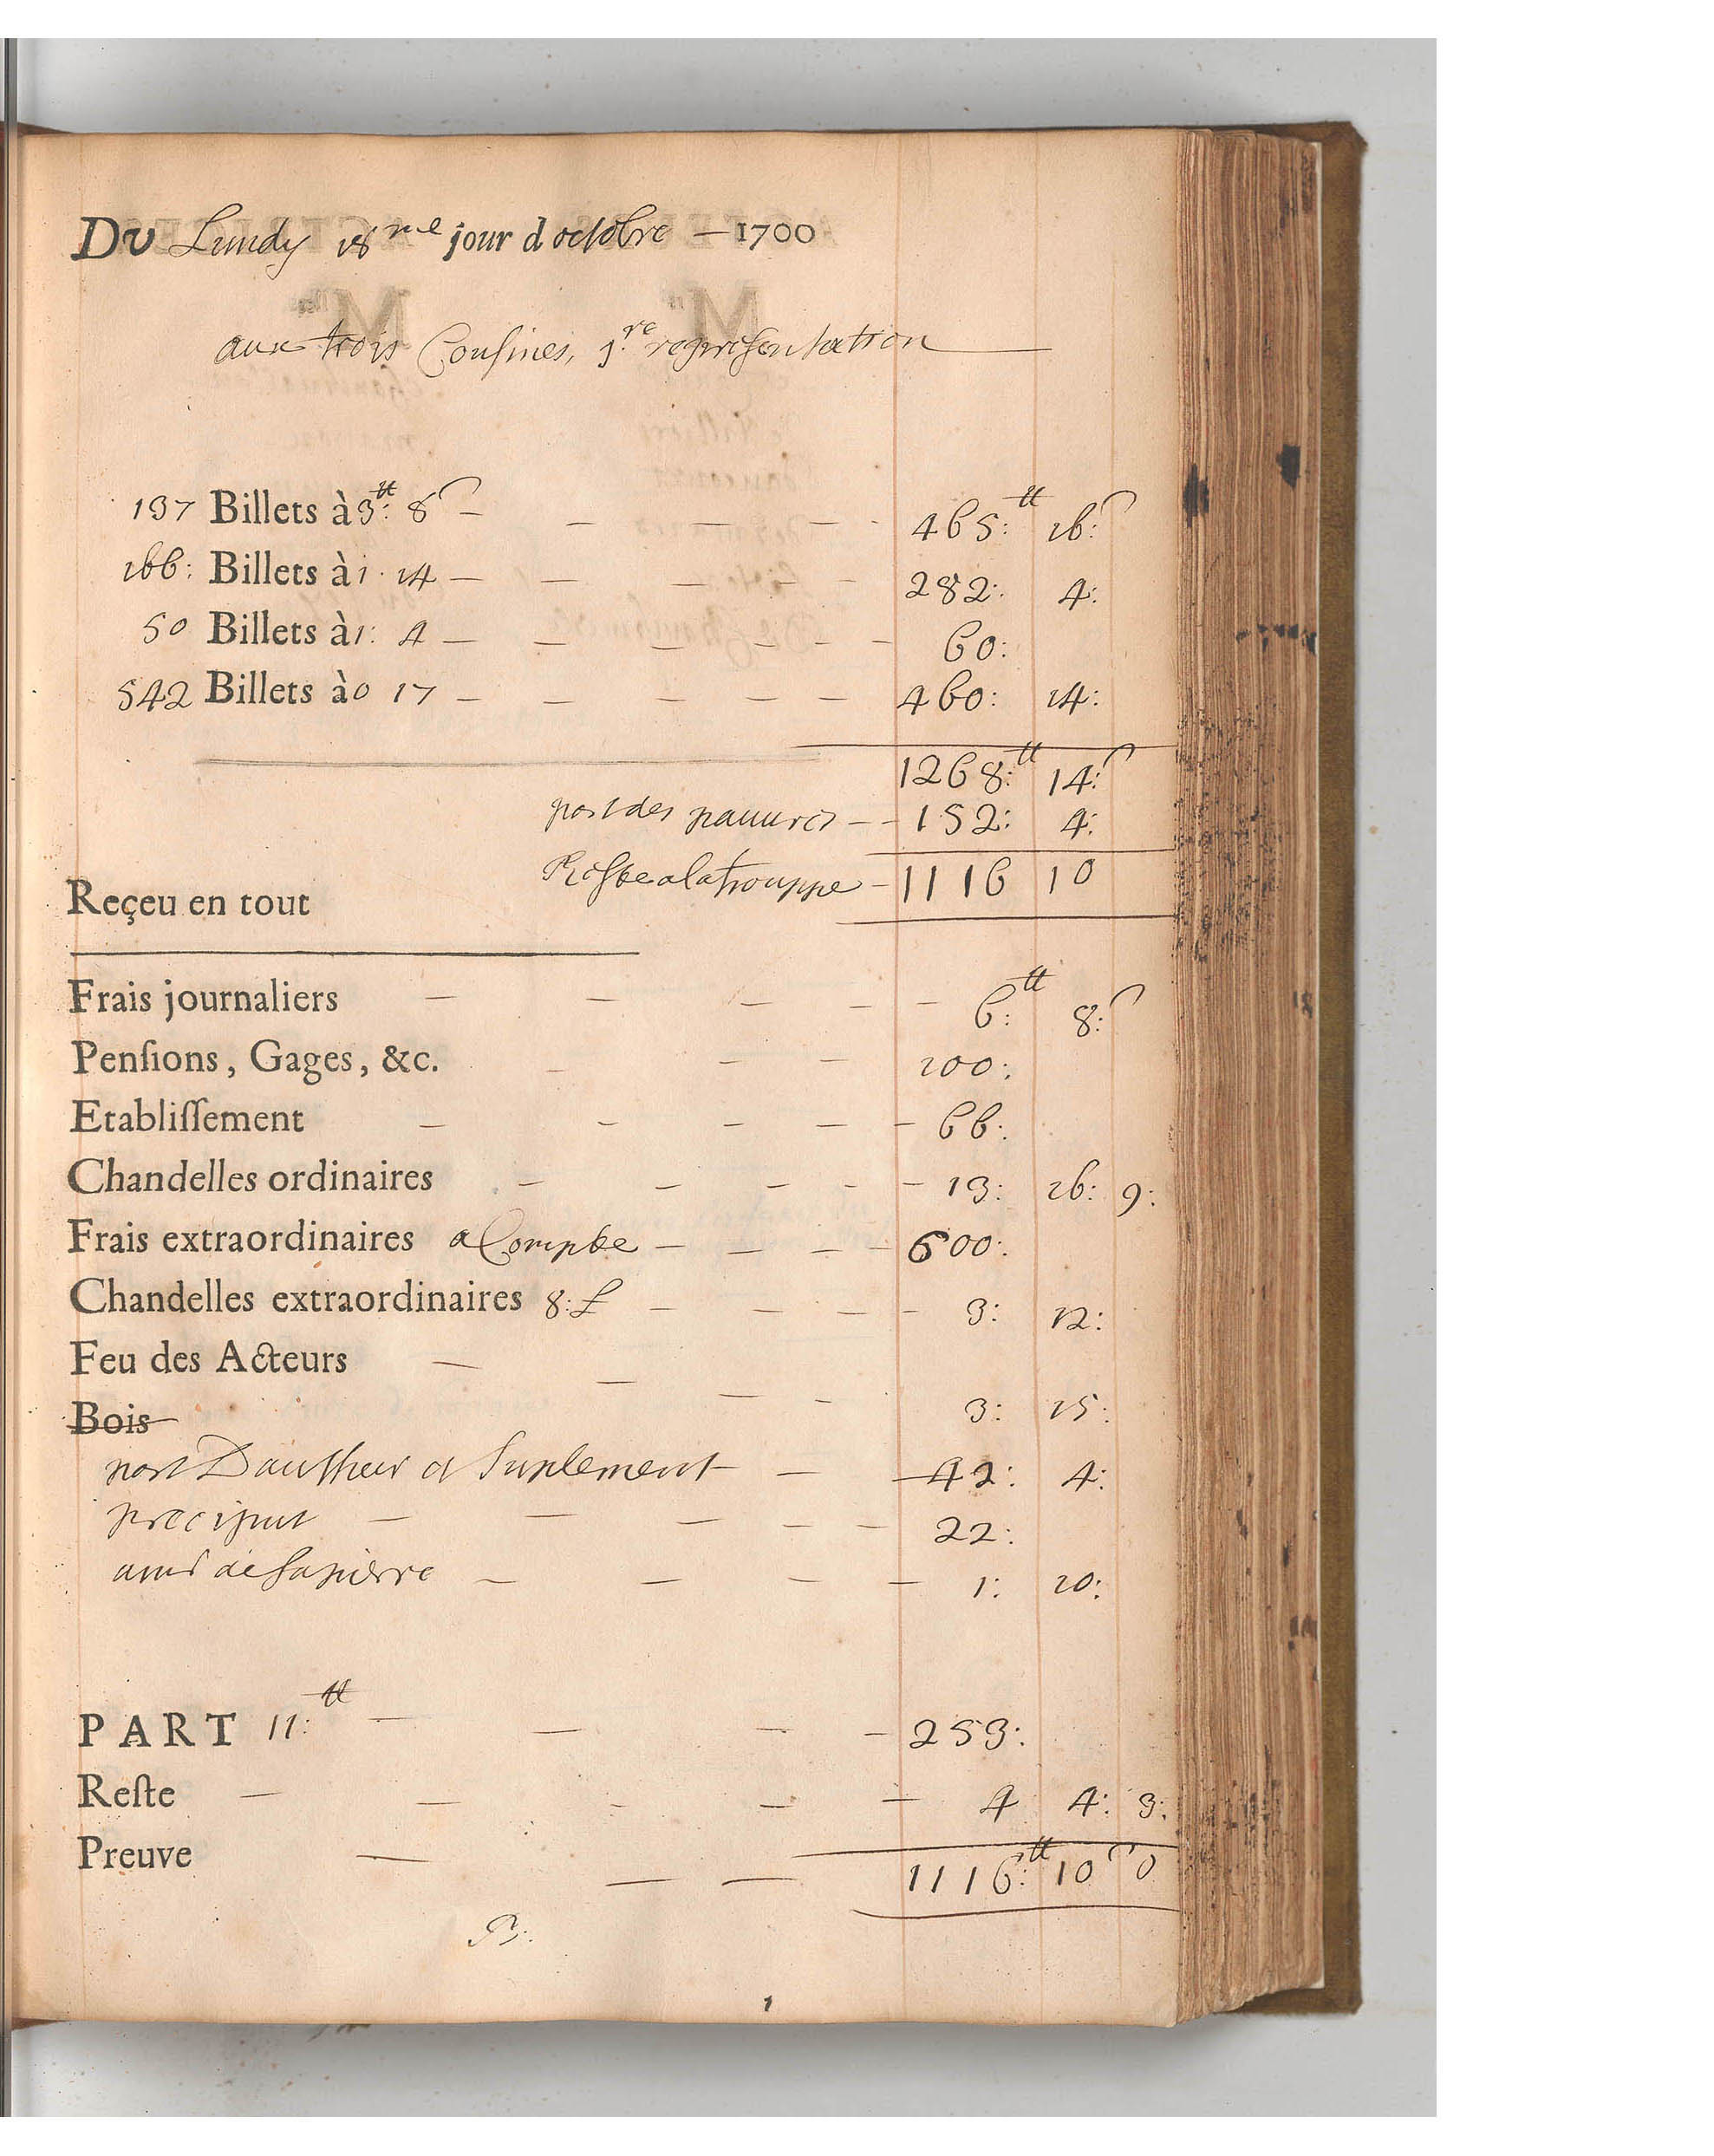 DU Lundy 18me jour d octobre — 1700
aux trois Cousines, 1.re representation
137 Billets à 3:tt 8s — 465:tt 16:s
166: Billets à 1. 14 — 282: 4:
50 Billets à 1: 4 — 60:
542 Billets à 0 17 — 460: 14:
1268:tt 14:s
part des pauures — 152: 4:
Reste a la trouppe — 1116 10
Reçeu en tout
Frais journaliers — 6:tt 8:s
Penſions, Gages, &c. — 100:
Etabliſſement — 66:
Chandelles ordinaires — 13: 16: 9:
Frais extraordinaires a Compte — 600:
Chandelles extraordinaires 8:L — 3: 12:
Feu des Acteurs —
Bois 3: 15:
part Dautheur et Suplement — 42: 4:
preciput — 22:
1: 10:
PART 11:tt — 253:
Reſte — 4 4: 3:
Preuve — 1116:tt 10s 0